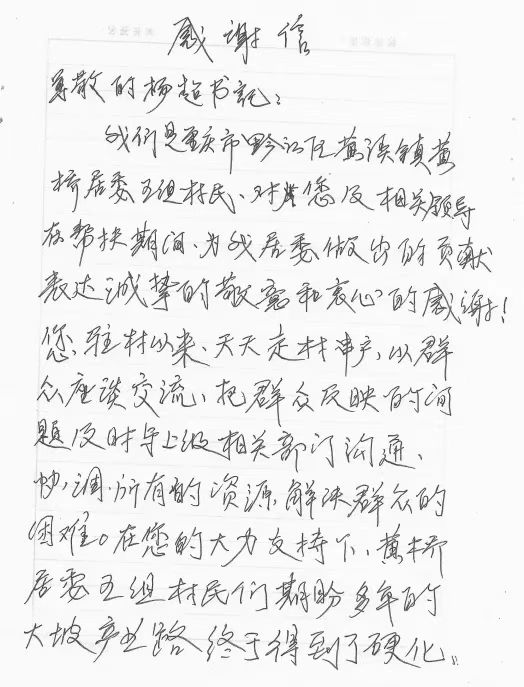 感谢信
尊敬的杨超书記：
我们是重庆市黔江区黄溪镇黄
桥居委五组村民、对您及相关领导
在帮扶期间、为我居委做出的贡献
表达诚挚的敬意和衷心的感谢！
您、驻村以来、天天走村串户、以群
众座谈交流、把群众反映的问
题及时与上级相关部门沟通、
协调、所有的资源、解决群众的
困难。在您的大力支持下、黄桥
居委五组村民们期盼多年的
大坡产业路终于得到了硬化。